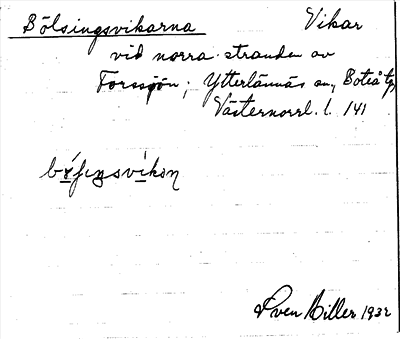 Bölsingsvikarna Vikar
vid norra stranden av
Forssjön, Ytterlännäs sn, Boteå tg,
Västernorrl. l. 141
Sven Hiller 1932